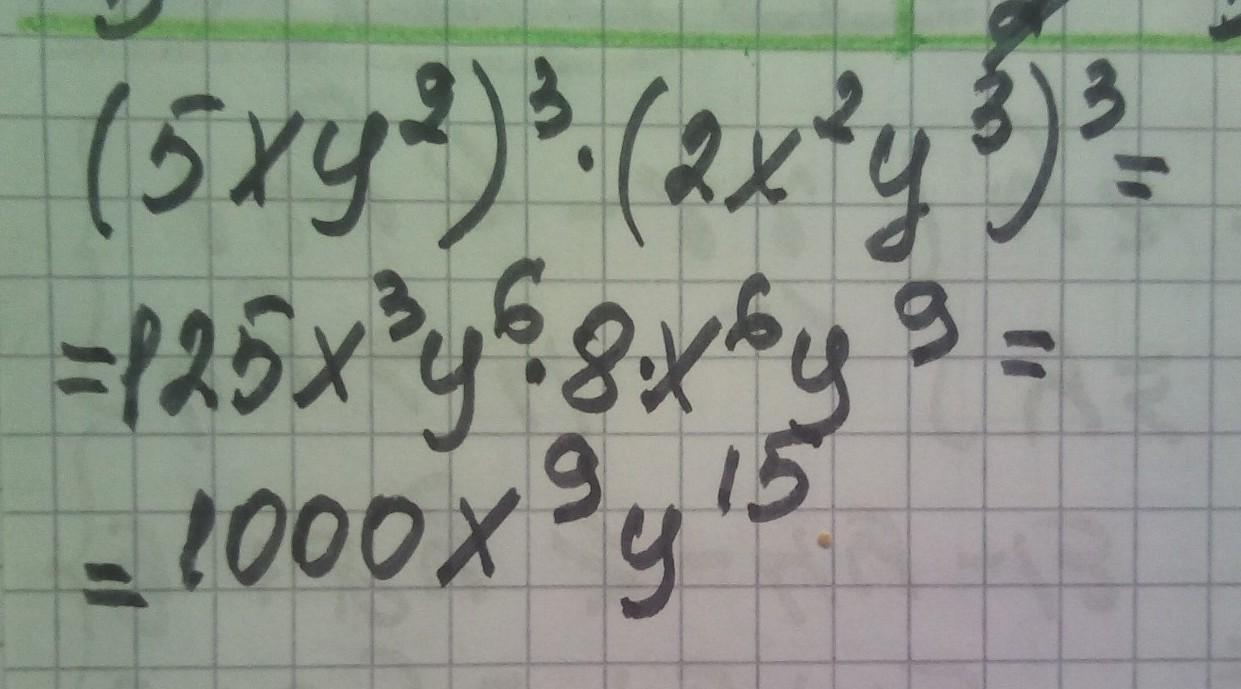 (5xy²)³·(2x²y³)³=
=125x³y⁶·8·x⁶y⁹=
=1000x⁹y¹⁵